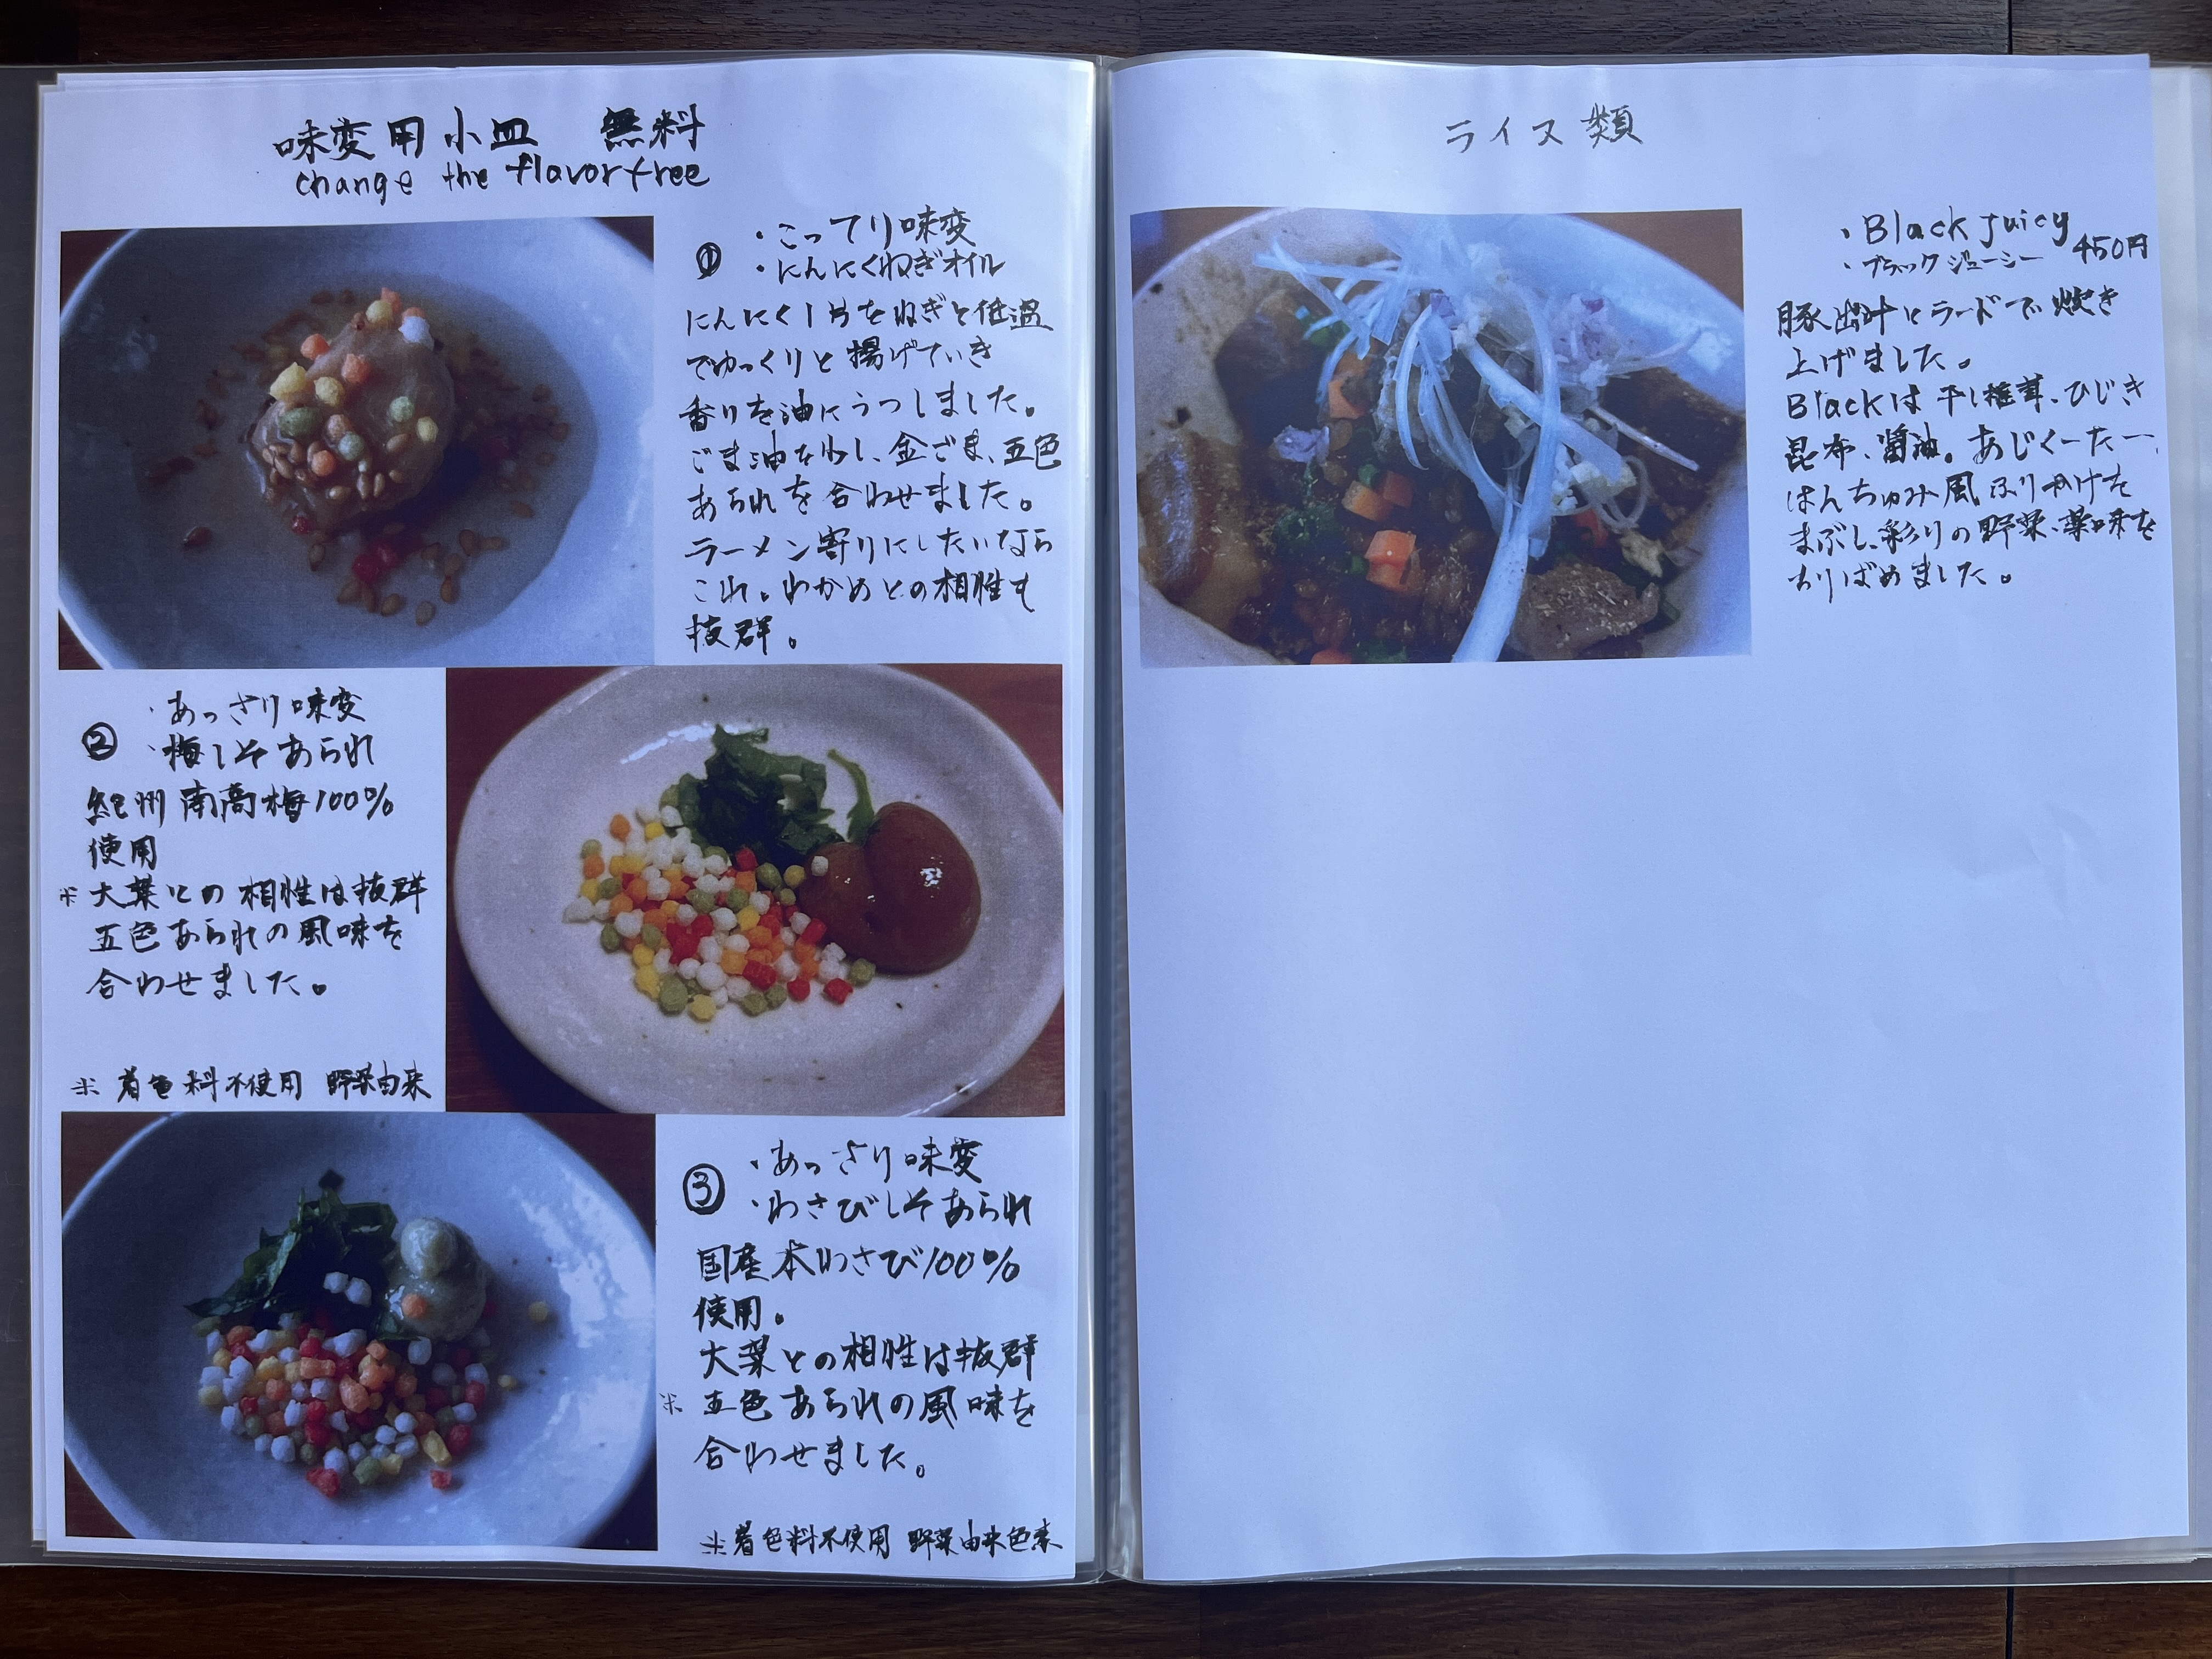 味変用小皿 無料
change the flavor free
① ・こってり味変
・にんにくねぎオイル
にんにく1片をねぎと低温
でゆっくりと揚げていき
香りを油にうつしました。
ごま油をわし、金ごま、五色
あられを合わせました。
ラーメン寄りにしたいなら
これ。わかめとの相性も
抜群。
② ・あっさり味変
・梅しそあられ
紀州南高梅100%
使用
※大葉との相性は抜群
五色あられの風味を
合わせました。
※着色料不使用 野菜由来
③ ・あっさり味変
・わさびしそあられ
国産本わさび100%
使用。
大葉との相性は抜群
※五色あられの風味を
合わせました。
※着色料不使用 野菜由来色素
ライス類
・Black Juicy
・ブラックジューシー 450円
豚出汁とラードで炊き
上げました。
Blackは干し椎茸、ひじき
昆布、醤油。あじくーたー、
はんちゅみ風ふりかけを
まぶし、彩りの野菜、薬味を
ちりばめました。